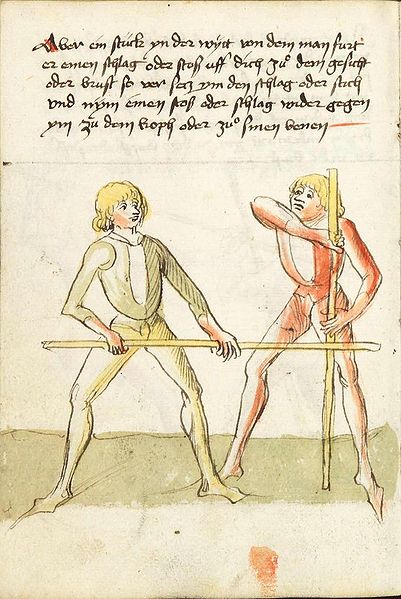 Aber ein stuck yn der wytt von dem man furt
er einen schlag oder stoß uff dich zuͦ dem gesicht
oder brust so ver setz ym den schlag oder stich
vnd nym einen stoß oder schlag wider gegen
ym zu dem koph oder zuͦ sinen benen